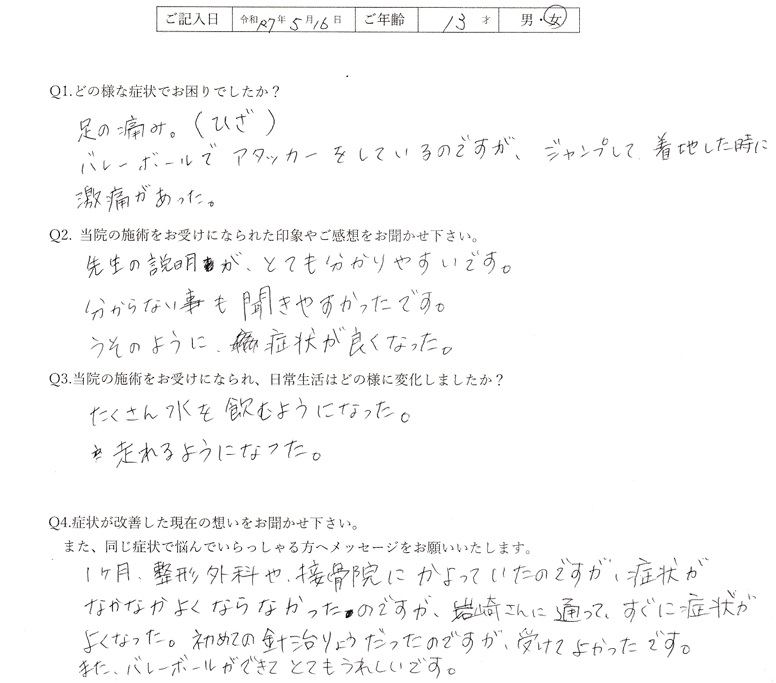 ご記入日 令和R7年5月16日 ご年齢 13才 男・女
Q1.どの様な症状でお困りでしたか？
足の痛み。(ひざ)
バレーボールでアタッカーをしているのですが、ジャンプして、着地した時に
激痛があった。
Q2. 当院の施術をお受けになられた印象やご感想をお聞かせ下さい。
先生の説明が、とても分かりやすいです。
分からない事も聞きやすかったです。
うそのように、症状が良くなった。
Q3.当院の施術をお受けになられ、日常生活はどの様に変化しましたか？
たくさん水を飲むようになった。
走れるようになった。
Q4.症状が改善した現在の想いをお聞かせ下さい。
また、同じ症状で悩んでいらっしゃる方へメッセージをお願いいたします。
1ヶ月、整形外科や、接骨院にかよっていたのですが、症状が
なかなかよくならなかったのですが、岩崎さんに通って、すぐに症状が
よくなった。初めての針治りょうだったのですが、受けてよかったです。
また、バレーボールができてとてもうれしいです。